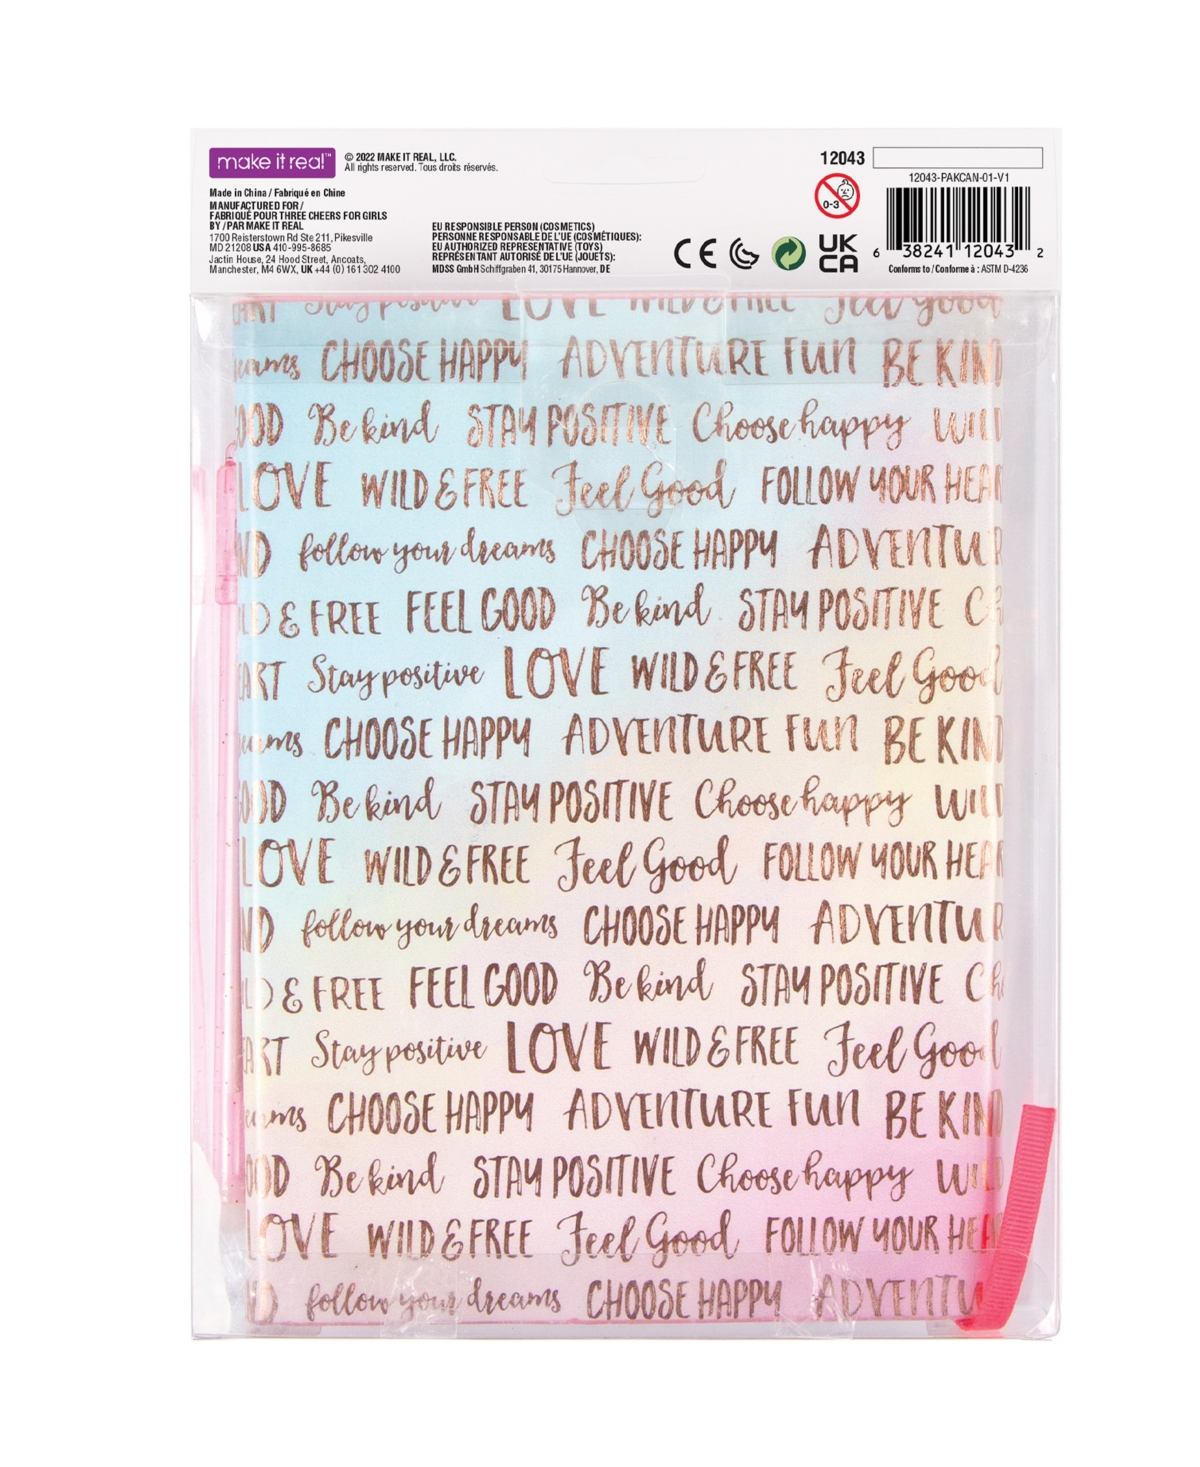 make it real™
© 2022 MAKE IT REAL, LLC.
All rights reserved. Tous droits réservés.
Made in China / Fabriqué en Chine
MANUFACTURED FOR /
FABRIQUÉ POUR THREE CHEERS FOR GIRLS
BY / PAR MAKE IT REAL
1700 Reisterstown Rd Ste 211, Pikesville
MD 21208 USA 410-995-8685
Jactin House, 24 Hood Street, Ancoats,
Manchester, M4 6WX, UK +44 (0) 161 302 4100
EU RESPONSIBLE PERSON (COSMETICS)
PERSONNE RESPONSABLE DE L'UE (COSMÉTIQUES):
EU AUTHORIZED REPRESENTATIVE (TOYS)
REPRÉSENTANT AUTORISÉ DE L'UE (JOUETS):
MDSS GmbH Schiffgraben 41, 30175 Hannover, DE
CE
UK
CA
12043
0-3
12043-PAKCAN-01-V1
6 38241 12043 2
Conforms to / Conforme à : ASTM D-4236
ART Stay positive LOVE WILD & FREE Feel Good
eams CHOOSE HAPPY ADVENTURE FUN BE KIND
OOD Be kind STAY POSITIVE Choose happy WILD
LOVE WILD & FREE Feel Good FOLLOW YOUR HEAR
ND follow your dreams CHOOSE HAPPY ADVENTUR
LD & FREE FEEL GOOD Be kind STAY POSITIVE Ch
ART Stay positive LOVE WILD & FREE Feel Good
eams CHOOSE HAPPY ADVENTURE FUN BE KIND
OOD Be kind STAY POSITIVE Choose happy WILD
LOVE WILD & FREE Feel Good FOLLOW YOUR HEAR
ND follow your dreams CHOOSE HAPPY ADVENTUR
LD & FREE FEEL GOOD Be kind STAY POSITIVE Ch
ART Stay positive LOVE WILD & FREE Feel Good
eams CHOOSE HAPPY ADVENTURE FUN BE KIND
OOD Be kind STAY POSITIVE Choose happy WILD
LOVE WILD & FREE Feel Good FOLLOW YOUR HEA
ND follow your dreams CHOOSE HAPPY ADVENTU